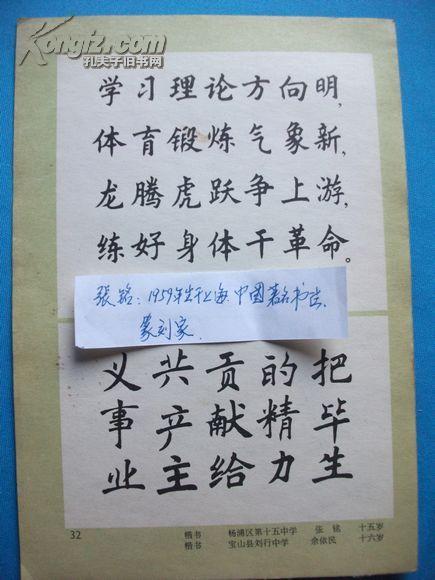 Kongfz.com
孔夫子旧书网
学习理论方向明，
体育锻炼气象新，
龙腾虎跃争上游，
练好身体干革命。
張銘：1959年生于上海 中國著名书法、
篆刻家.
把毕生
的精力
贡献给
共产主
义事业
32
楷书 杨浦区第十五中学 张铭 十五岁
楷书 宝山县刘行中学 余依民 十六岁